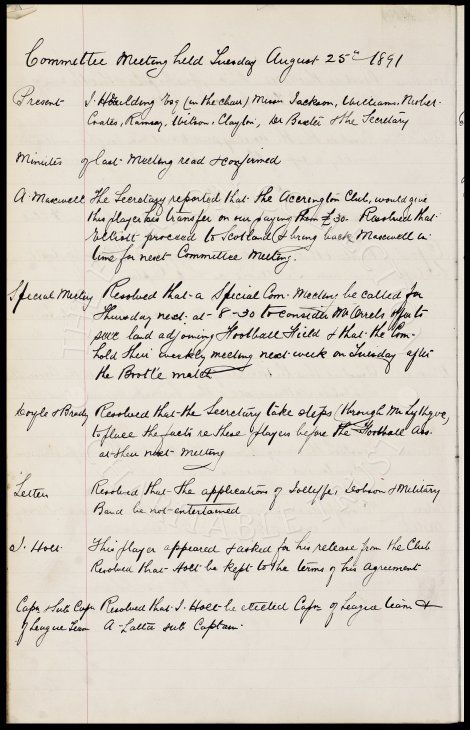 Committee Meeting held Tuesday August 25th 1891
Present J. Houlding Esq (in the chair) Messrs Jackson, Williams, Nisbet
Coates, Ramsay, Wilson, Clayton, Dr Baxter & the Secretary
Minutes of last Meeting read & confirmed
A. Maxwell The Secretary reported that the Accrington Club, would give
this player his transfer on our paying them £30. Resolved that
Elliott proceed to Scotland & bring back Maxwell in
time for next Committee Meeting.
Special Meeting Resolved that a Special Com. Meeting be called for
Thursday next at 8-30 to consider Mr Orrels offer to
land adjoining Football Field & that the Com.
hold their weekly meeting next week on Tuesday after
the Bootle match
Doyle & Brady Resolved that the Secretary take steps (through Mr Lythgoe,
to place the facts re these players before the Football Ass.
at their next Meeting
Letters Resolved that the applications of Jolliffe, Dobson & Military
Band be not entertained
J. Holt This player appeared & asked for his release from the Club
Resolved that Holt be kept to the terms of his agreement
Capn & Sub Capn Resolved that J. Holt be elected Capn of League team &
of League Team A. Latta sub Captain.